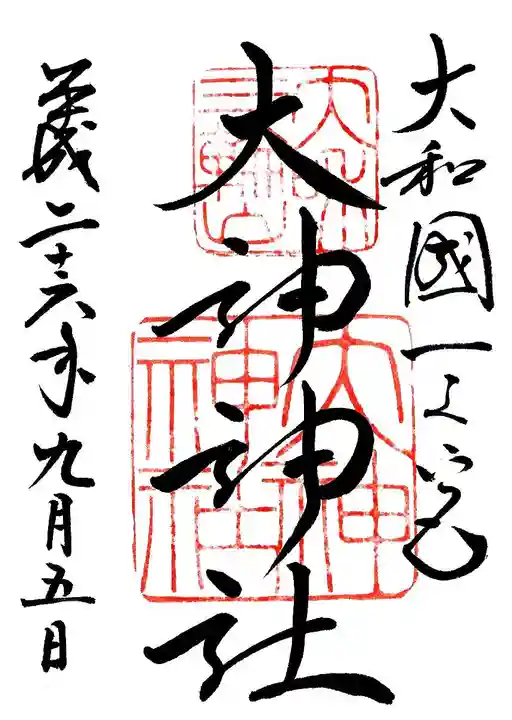 大和國一之宮
大神神社
平成二十六年九月五日
大神神社